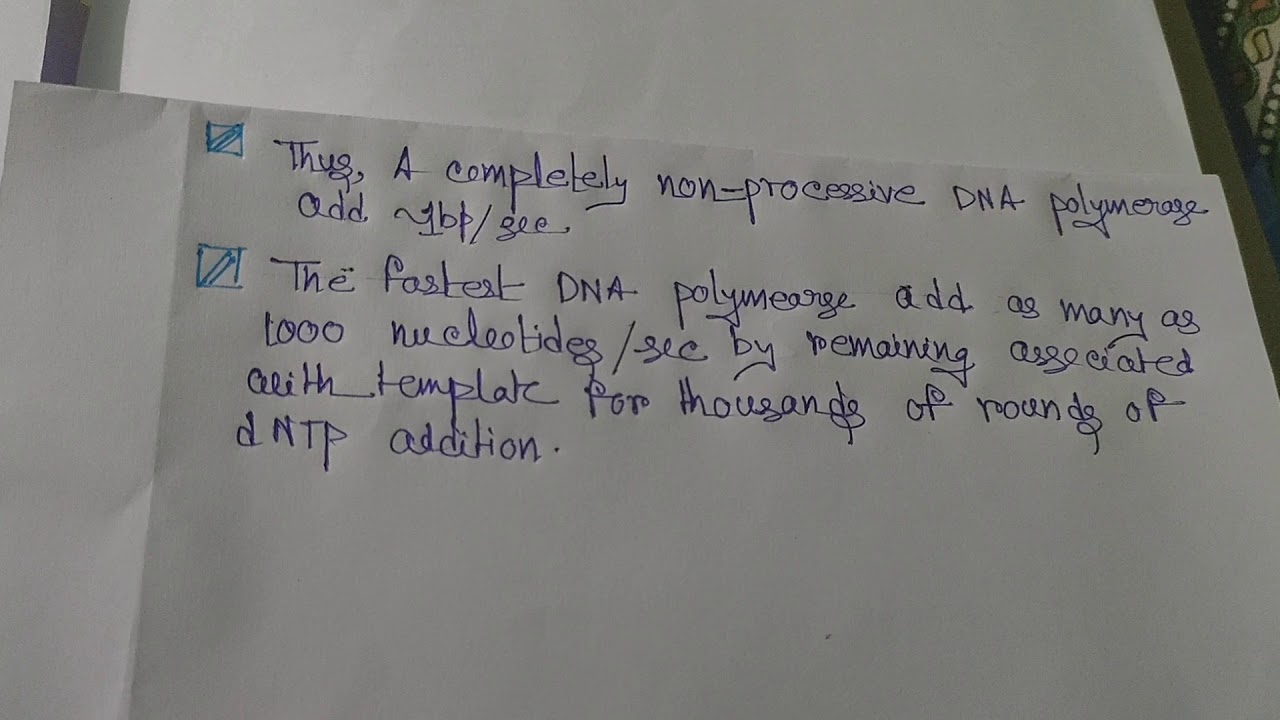 Thus, A completely non-processive DNA polymerase
add ~1bp/sec.
The fastest DNA polymearse add as many as
1000 nucleotides/sec by remaining associated
with template for thousands of rounds of
dNTP addition.